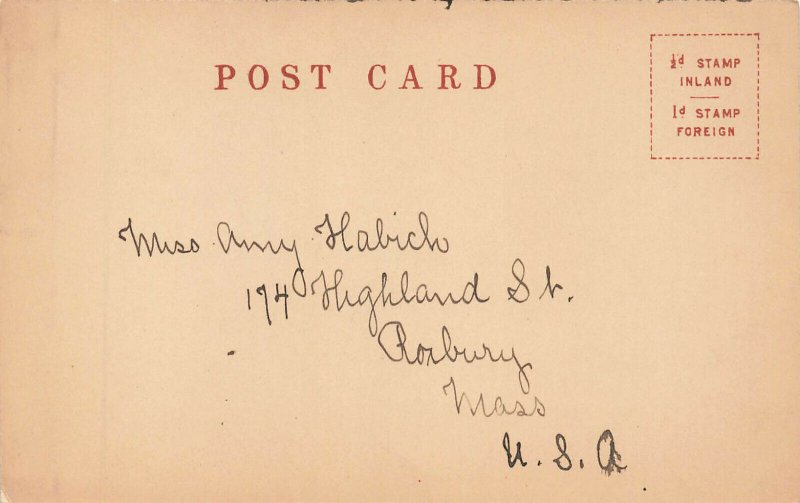 POST CARD
½d STAMP
INLAND
1d STAMP
FOREIGN
Miss Amy Habich
174 Highland St.
Roxbury
Mass
U. S. A